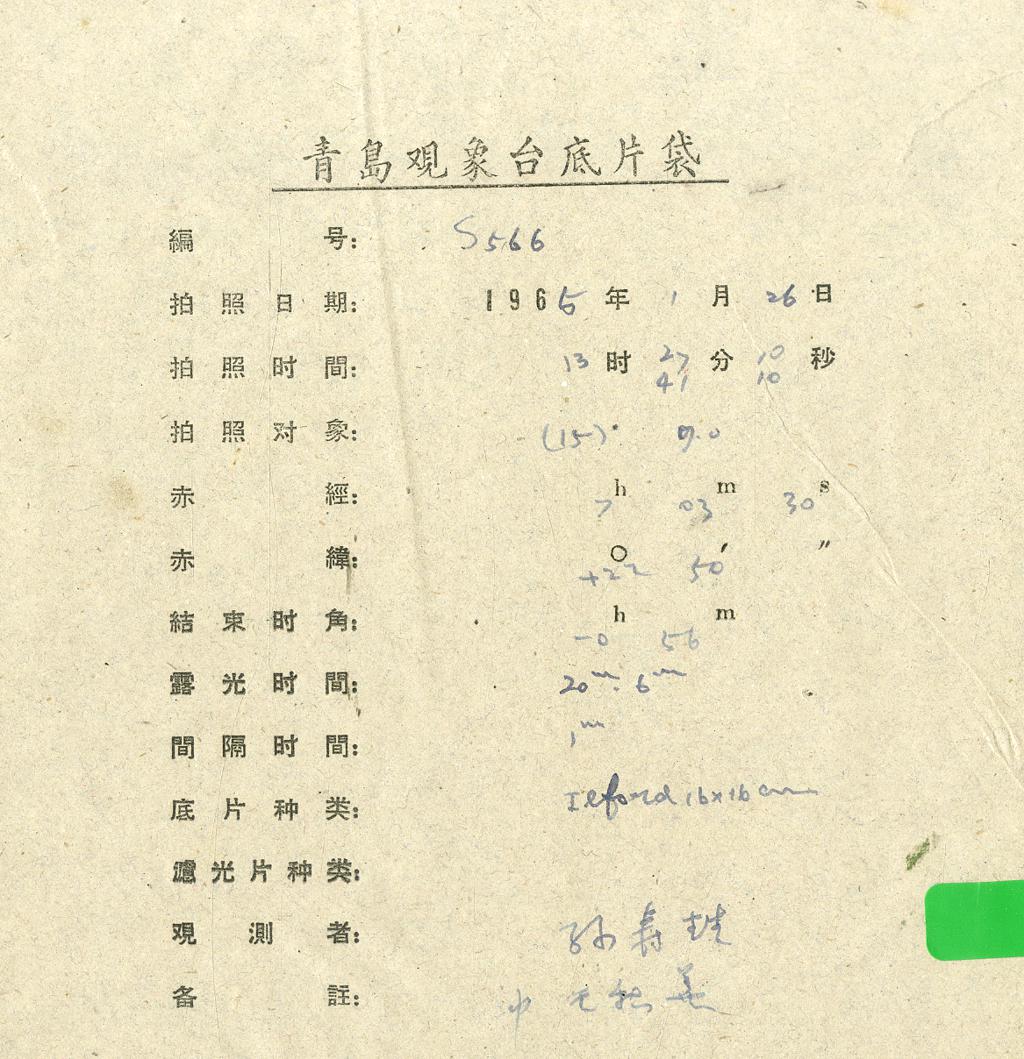 青島观象台底片袋
編号: S566
拍照日期: 1965年1月26日
拍照时間: 13时27分10秒
41 10
拍照对象: (15) 9.0
赤經: 7h 03m 30s
赤緯: +22° 50′ ″
結束时角: -0h 56m
露光时間: 20m. 6m
間隔时間: 1m
底片种类: Ilford 16x16cm
濾光片种类:
观測者: 孙寿
备註: